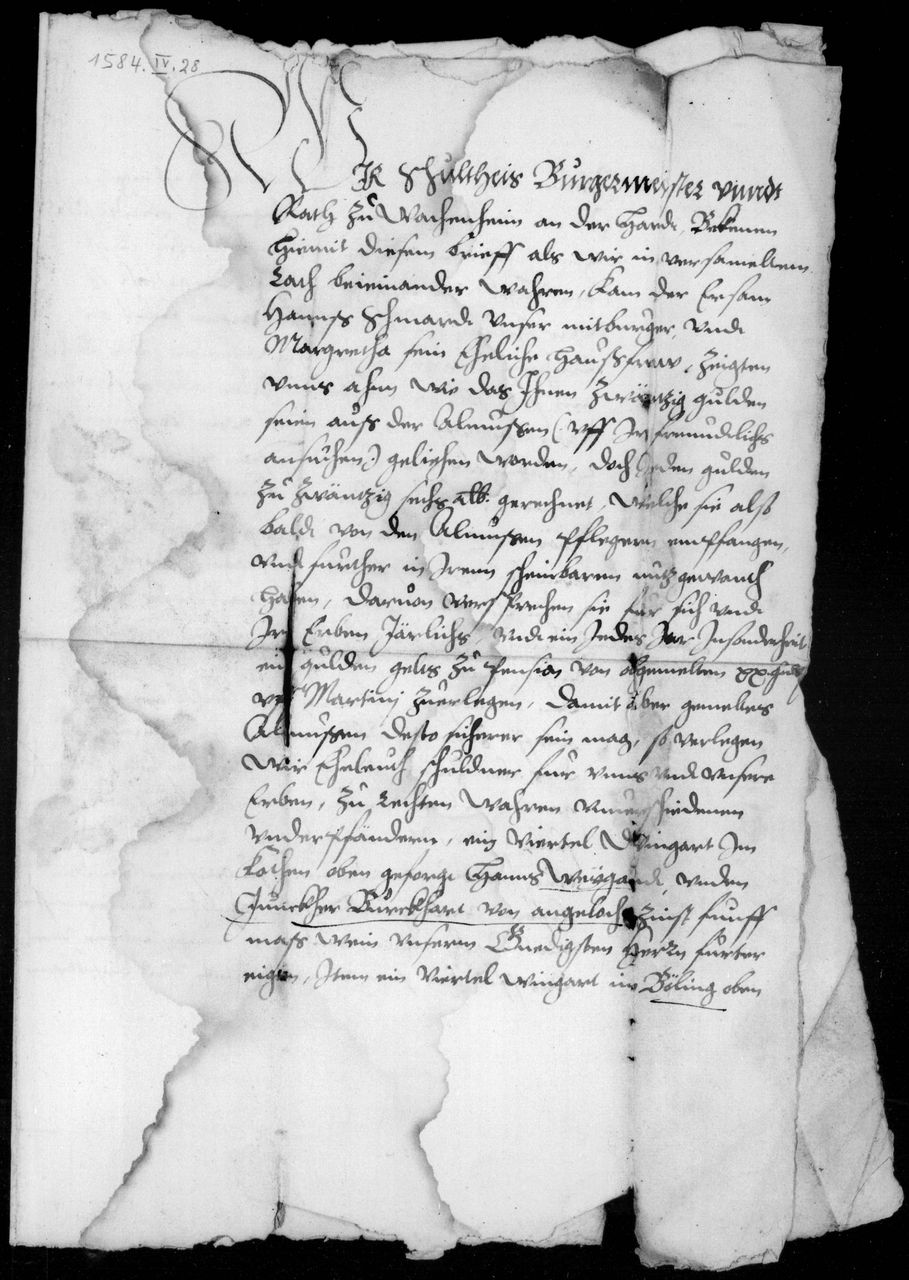 1584.IV.28
WIR Schultheis Burgermeister vnndt
Rath zu Wachenheim an der Hardt, Bekennen
hiemit diesem brieff als wir in versameltem
Rath beieinander wahren, kam der Ersam
Hannß Schmardt vnser mitburger, vndt
Margretha sein Eheliche haußfraw, zeigten
vnns ahnn wie das Ihnen zwäntzig gulden
seien auß der Almussen (vff Ir freundtlichs
ansuchen) geliehen worden, doch jeden gulden
zu zwäntzig sechs alb. gerechnet, welche sie alß
baldt von den Almussen Pflegern empfangen,
vndt further in Irenn scheinbaren nutz gewandt
haben, daruon versprechen sie für sich vndt
Ire Erben Järlichs, vndt ein Jedes Jar Insonderheit
ein gulden gelts zu Pension von obgemelten xx guld
vff Martinj zuerlegen, damit aber gemeltes
Almussen desto sicherer sein mag, so verlegen
wir Eheleuth schuldner für vnns vndt vnsere
Erben, zu rechten wahren vnuerschiedenen
vnderpfändern, ein viertel Wingart Im
Kothen oben geforge Hanns Weygandt, vnden
Junckher Burckhart von angeloch, zinst funff
maß wein vnserm Gnedigsten Herrn furter
eigen, Item ein viertel wingart im Böling oben